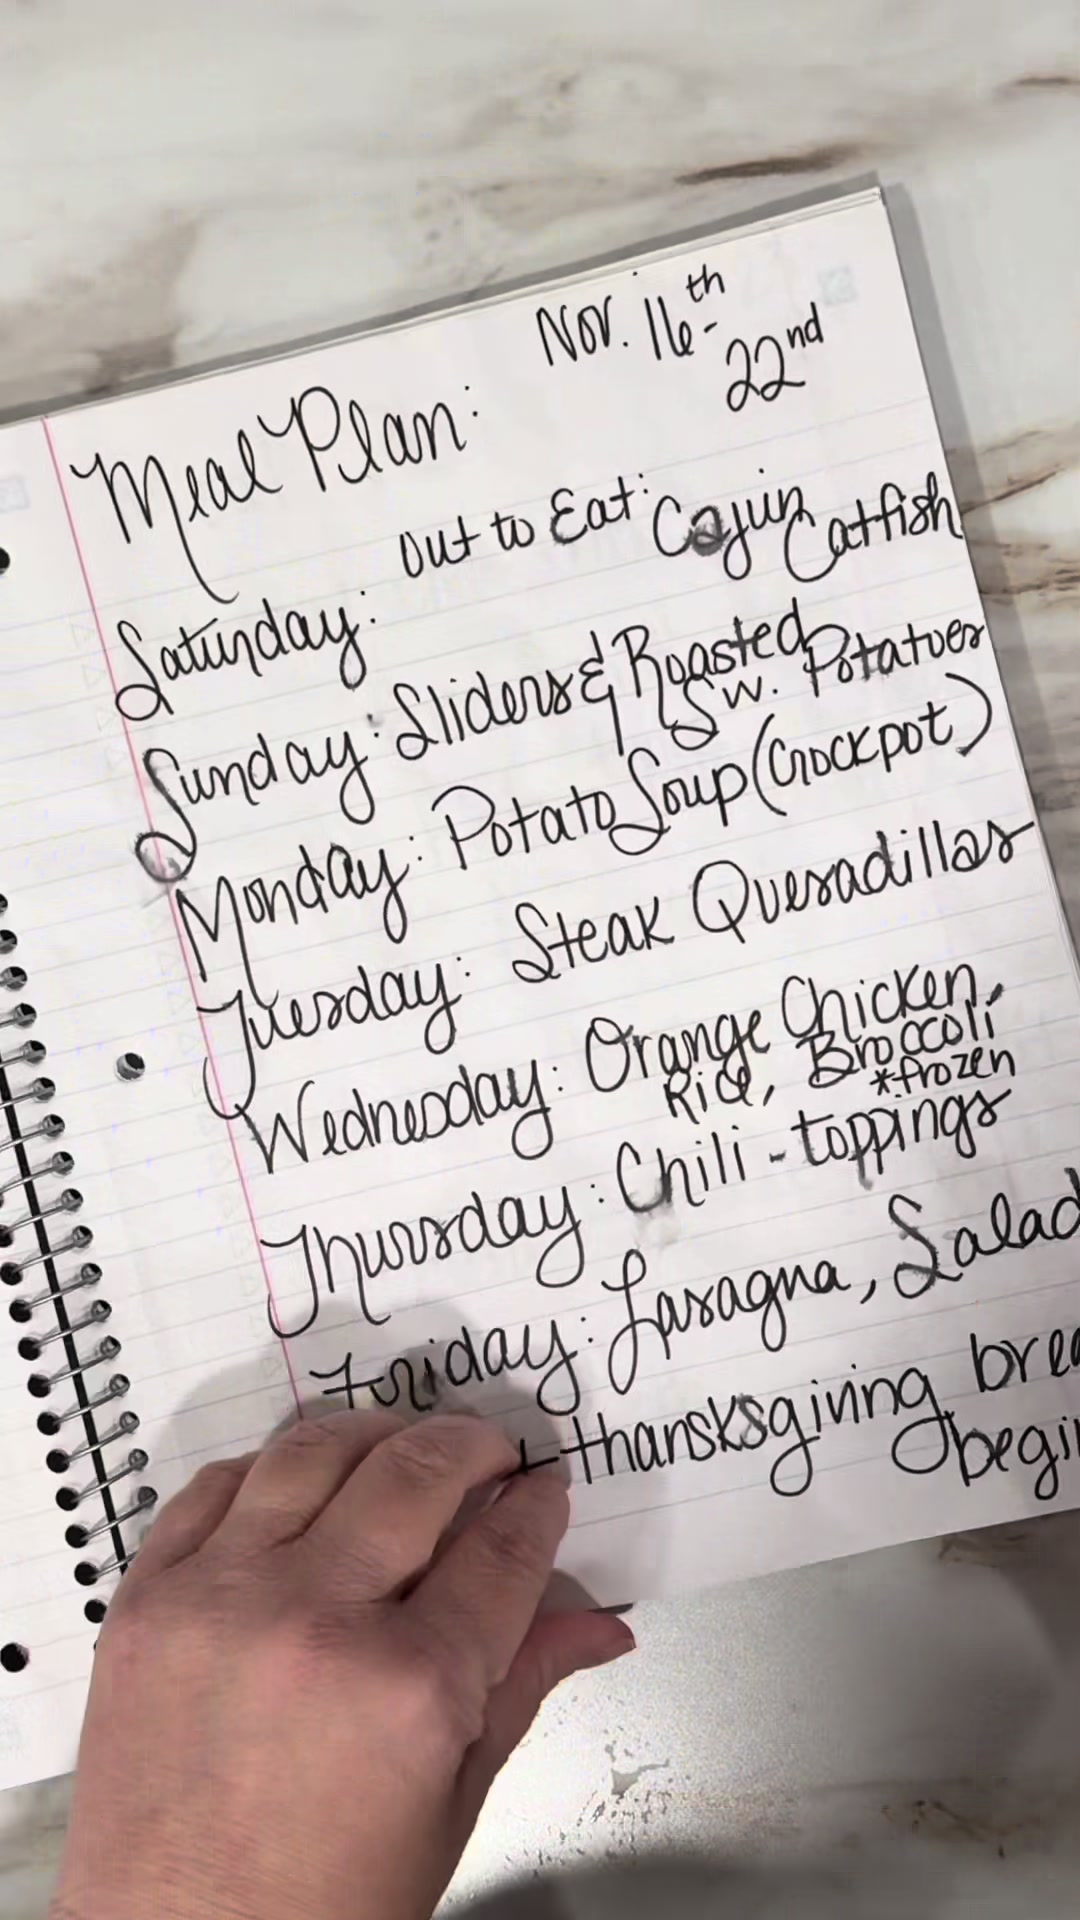 Nov. 16th-
22nd
Meal Plan:
Saturday: Out to Eat: Cajun Catfish
Sunday: Sliders & Roasted
Sw. Potatoes
Monday: Potato Soup (Crockpot)
Tuesday: Steak Quesadillas
Wednesday: Orange Chicken,
Rice, Broccoli
*frozen
Thursday: Chili - toppings
Friday: Lasagna, Salad
thansksgiving